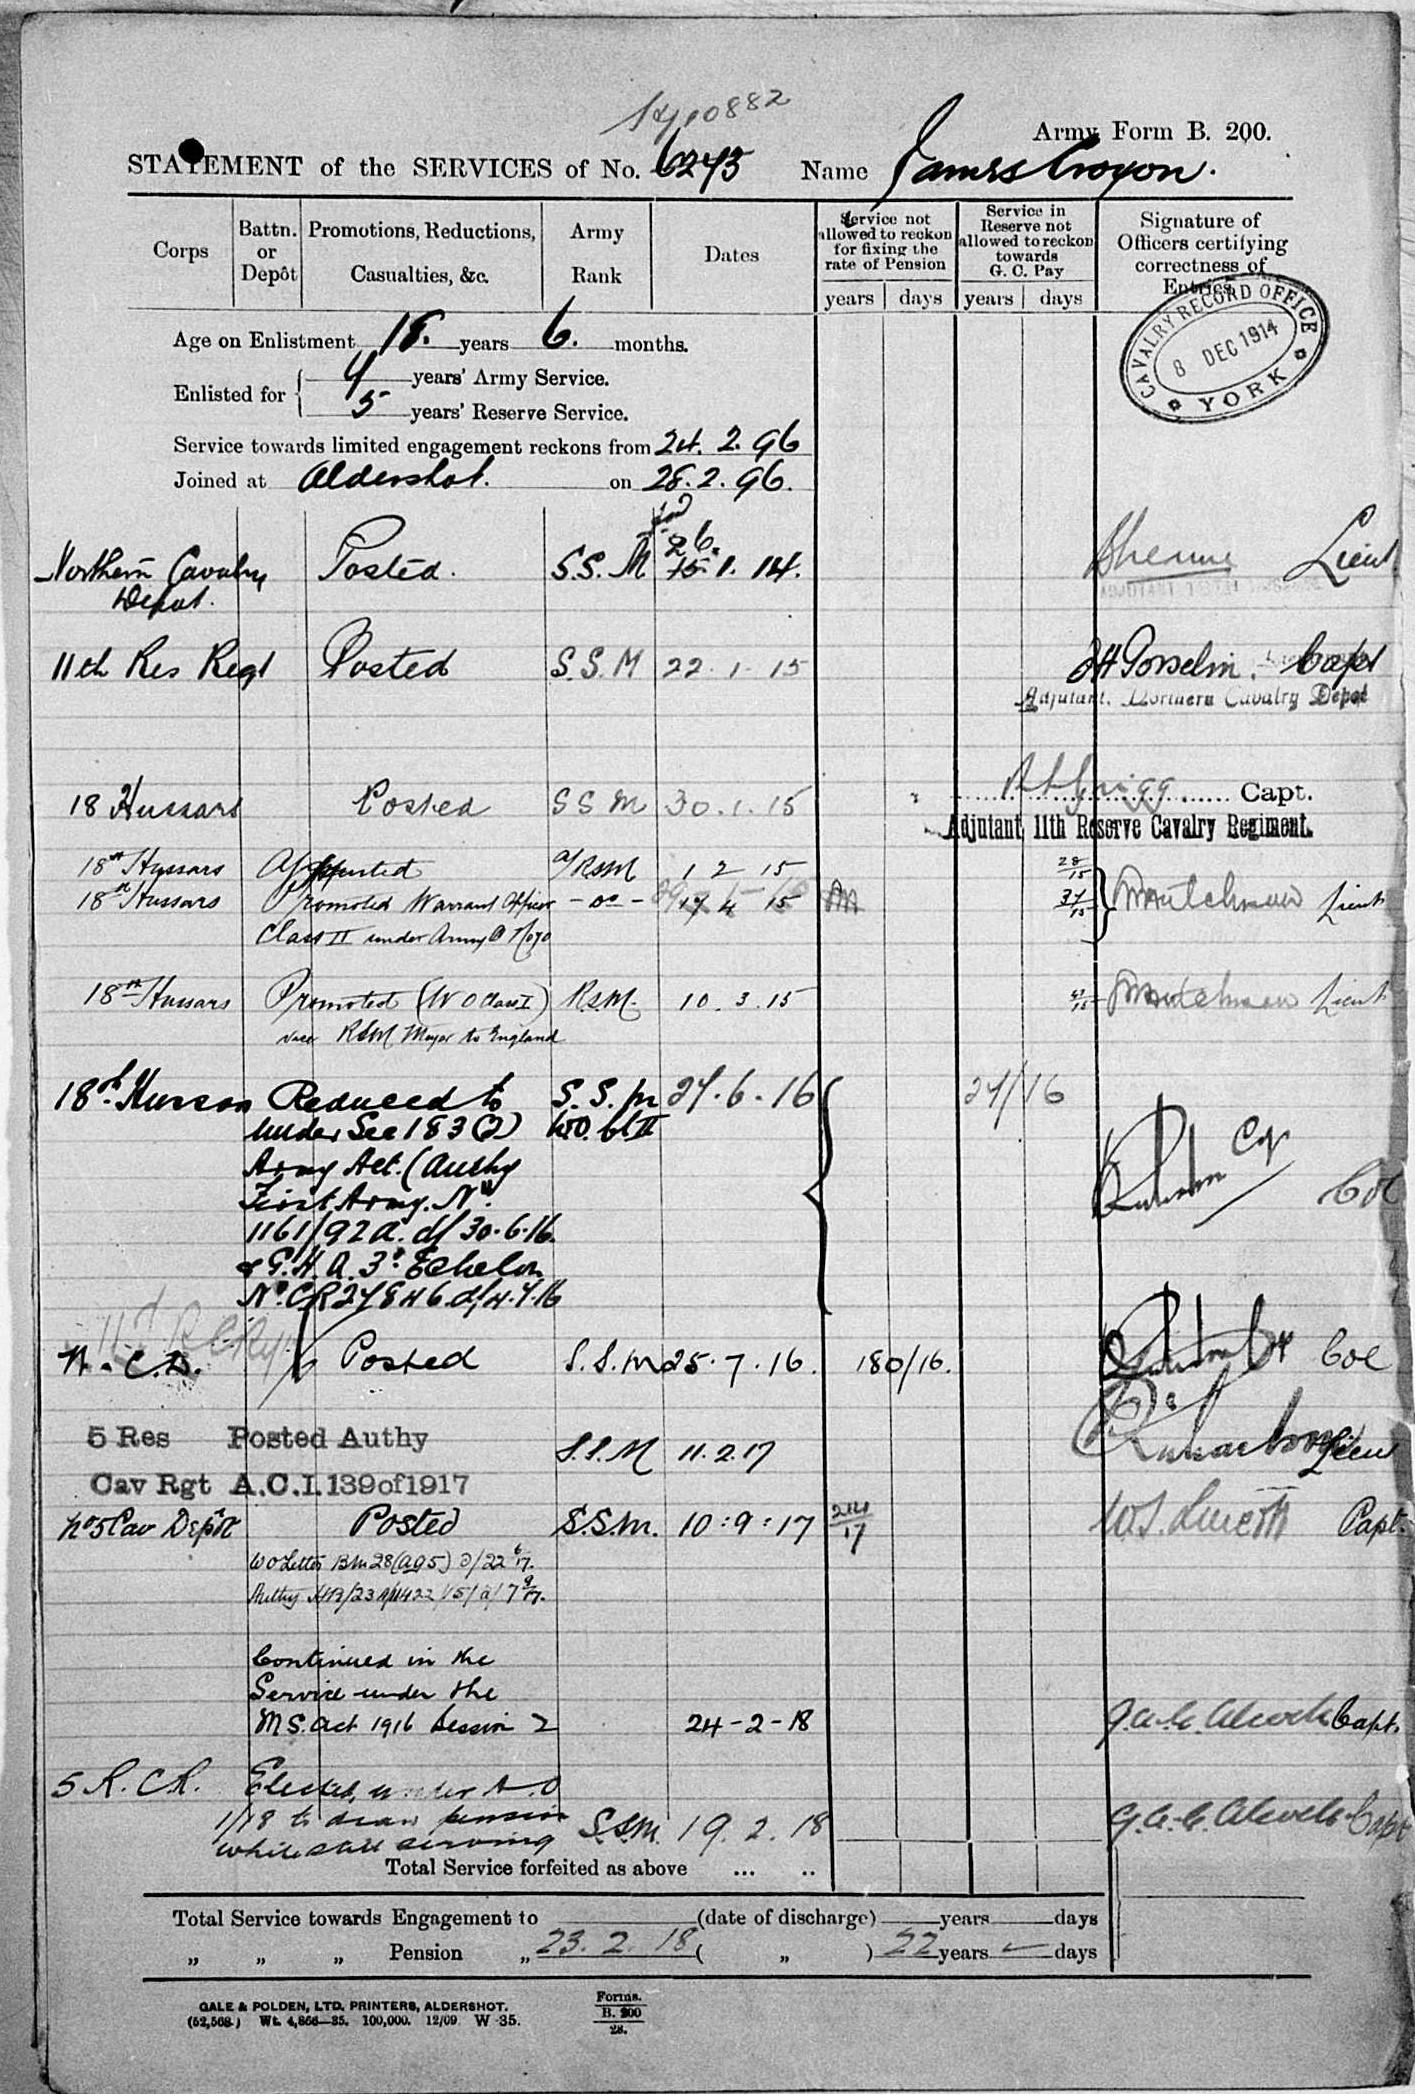 10882
Army Form B. 200.
STATEMENT of the SERVICES of No. 6243 Name James Croyon.
Corps
Battn. or Depôt
Promotions, Reductions, Casualties, &c.
Army Rank
Dates
Service not allowed to reckon for fixing the rate of Pension
Service in Reserve not allowed to reckon towards G. C. Pay
Signature of Officers certifying correctness of Entries
years days years days
CAVALRY RECORD OFFICE
8 DEC 1914
YORK
Age on Enlistment 18. years 6. months.
Enlisted for 4 years' Army Service.
5 years' Reserve Service.
Service towards limited engagement reckons from 24. 2. 96
Joined at Aldershot. on 28. 2. 96.
Northern Cavalry Posted. S.S.M 26. 15. 1. 14. Lieut
Depot.
11th Res Regt Posted S.S.M 22. 1. 15 Capt
Adjutant. Northern Cavalry Depot
18 Hussars Posted SSM 30. 1. 15 Capt.
Adjutant 11th Reserve Cavalry Regiment.
18th Hussars Appointed a/RSM 1 2 15 28/15
18th Hussars Promoted Warrant Officer - do - 4 15 Lieut
Class II under Army O
18th Hussars Promoted (WO Class I) RSM. 10. 3. 15 Lieut
vice RSM Mayer to England
18th Hussars Reduced to S.S.M 27. 6. 16 27/16
under Sec 183 (2) WO. Cl II
Army Act. (Authy
First Army. No
1161/92 a. d/ 30.6.16. Col
& G.H.Q. 3rd Echelon
No. CR 27846. d/ 4.7.16
N. C. D. Posted S.S.M 25. 7. 16. 180/16. Col
5 Res Posted Authy
S.S.M 11. 2. 17 Lieu
Cav Rgt A.C.I. 139 of 1917
No 5 Cav Depôt Posted S.S.M. 10:9:17 214/17 Capt.
WO Letter BM 28 (AG5) d/ 22 6/17.
Continued in the
Service under the
M S. Act 1916 Session 2 24-2-18 Capt.
5 R. C R. Elected, under A.O
1/18 to draw pension S.S.M. 19. 2. 18 Capt
while still serving
Total Service forfeited as above ... ..
Total Service towards Engagement to (date of discharge) years days
„ „ „ Pension „ 23. 2. 18 ( „ ) 22 years days
GALE & POLDEN, LTD. PRINTERS, ALDERSHOT.
(52,568.) Wt. 4,866—35. 100,000. 12/09 W 35.
Forms.
B. 200
28.